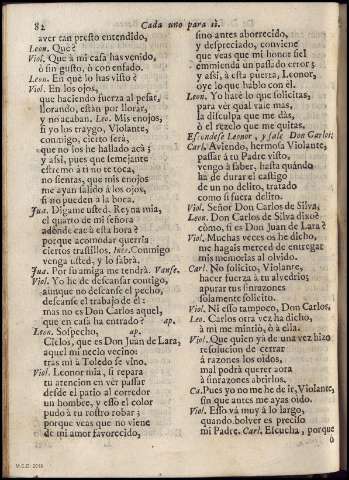 82 Cada uno para sì.
aver tan presto entendido,
Leon. Que?
Viol. Que à mi casa has venido,
ò sin gusto, ò con enfado.
Leon. En què lo has visto?
Viol. En los ojos,
que haciendo fuerza al pesar,
llorando, estàn por llorar,
y no acaban. Leo. Mis enojos,
si yo los traygo, Violante,
conmigo, cierto serà,
que no los he hallado acà;
y assi, pues que semejante
estremo à tì no te toca,
no sientas, que mis enojos
me ayan salido à los ojos,
si no pueden à la boca.
Jua. Digame usted, Reyna mia,
el quarto de mi señora
adònde cae à esta hora?
porque acomodar querria
ciertos trastillos. Inès. Conmigo
venga usted, y lo sabrà.
Jua. Por su amiga me tendrà. Vanse.
Viol. Yo he de descansar contigo,
aunque no descanse el pecho,
descanse el trabajo de èl:
mas no es Don Carlos aquel,
que en casa ha entrado? ap.
Leon. Sospecho, ap.
Cielos, que es Don Juan de Lara,
aquel mi necio vecino:
tras mì à Toledo se vino.
Viol. Leonor mia, si repara
tu atencion en vèr passar
desde el patio al corredor
un hombre, y esso el color
pudo à tu rostro robar;
porque veas que no viene
de mi amor favorecido,
sino antes aborrecido,
y despreciado, conviene
que veas que mi honor sièl
emmienda un passado error;
y assi, à esta puerta, Leonor,
oye lo que hablo con èl.
Leon. Yo harè lo que solicitas,
para vèr qual vale mas,
la disculpa que me dàs,
ò el rezelo que me quitas.
Escondese Leonor, y sale Don Carlos.
Carl. Aviendo, hermosa Violante,
passar à tu Padre visto,
vengo à saber, hasta quàndo
ha de durar el castigo
de un no delito, tratado
como si fuera delito.
Viol. Señor Don Carlos de Silva,
Leon. Don Carlos de Silva dixo?
còmo, si es Don Juan de Lara?
Viol. Muchas veces os he dicho,
me hagais merced de entregar
mis memorias al olvido.
Carl. No solicito, Violante,
hacer fuerza à tu alvedrio;
apurar tus sinrazones
solamente solicito.
Viol. Ni esso tampoco, Don Carlos.
Leo. Carlos otra vez ha dicho,
à mì me mintiò, ò à ella.
Viol. Que quien yà de una vez hizo
resolucion de cerrar
à razones los oìdos,
mal podrà querer aora
à sinrazones abrirlos.
Ca. Pues yo no me he de ir, Violante,
sin que antes me ayas oìdo.
Viol. Esso và muy à lo largo,
quando bolver es preciso
mi Padre. Carl. Escucha, porque
ò
M.C.D. 2018